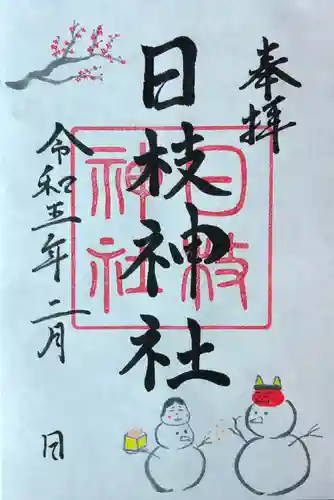 奉拝
日枝神社
日枝
神社
令和五年二月
日